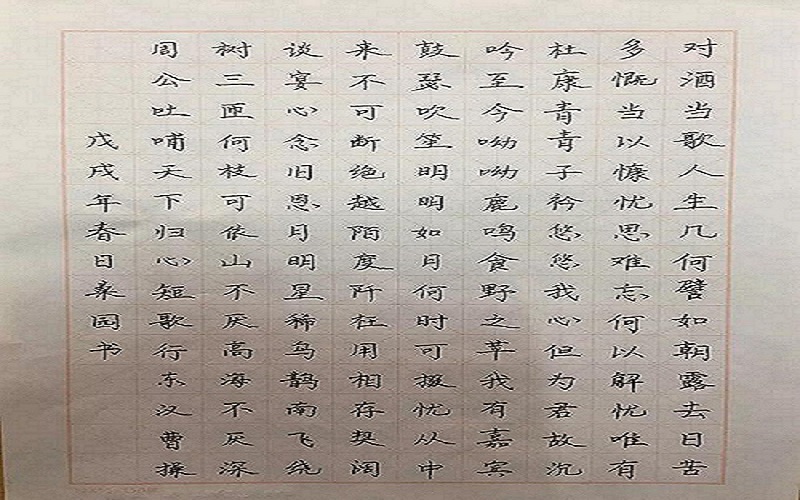 对酒当歌人生几何譬如朝露去日苦
多慨当以慷忧思难忘何以解忧唯有
杜康青青子衿悠悠我心但为君故沉
吟至今呦呦鹿鸣食野之苹我有嘉宾
鼓瑟吹笙明明如月何时可掇忧从中
来不可断绝越陌度阡枉用相存契阔
谈宴心念旧恩月明星稀乌鹊南飞绕
树三匝何枝可依山不厌高海不厌深
周公吐哺天下归心短歌行东汉曹操
戊戌年春日桑园书